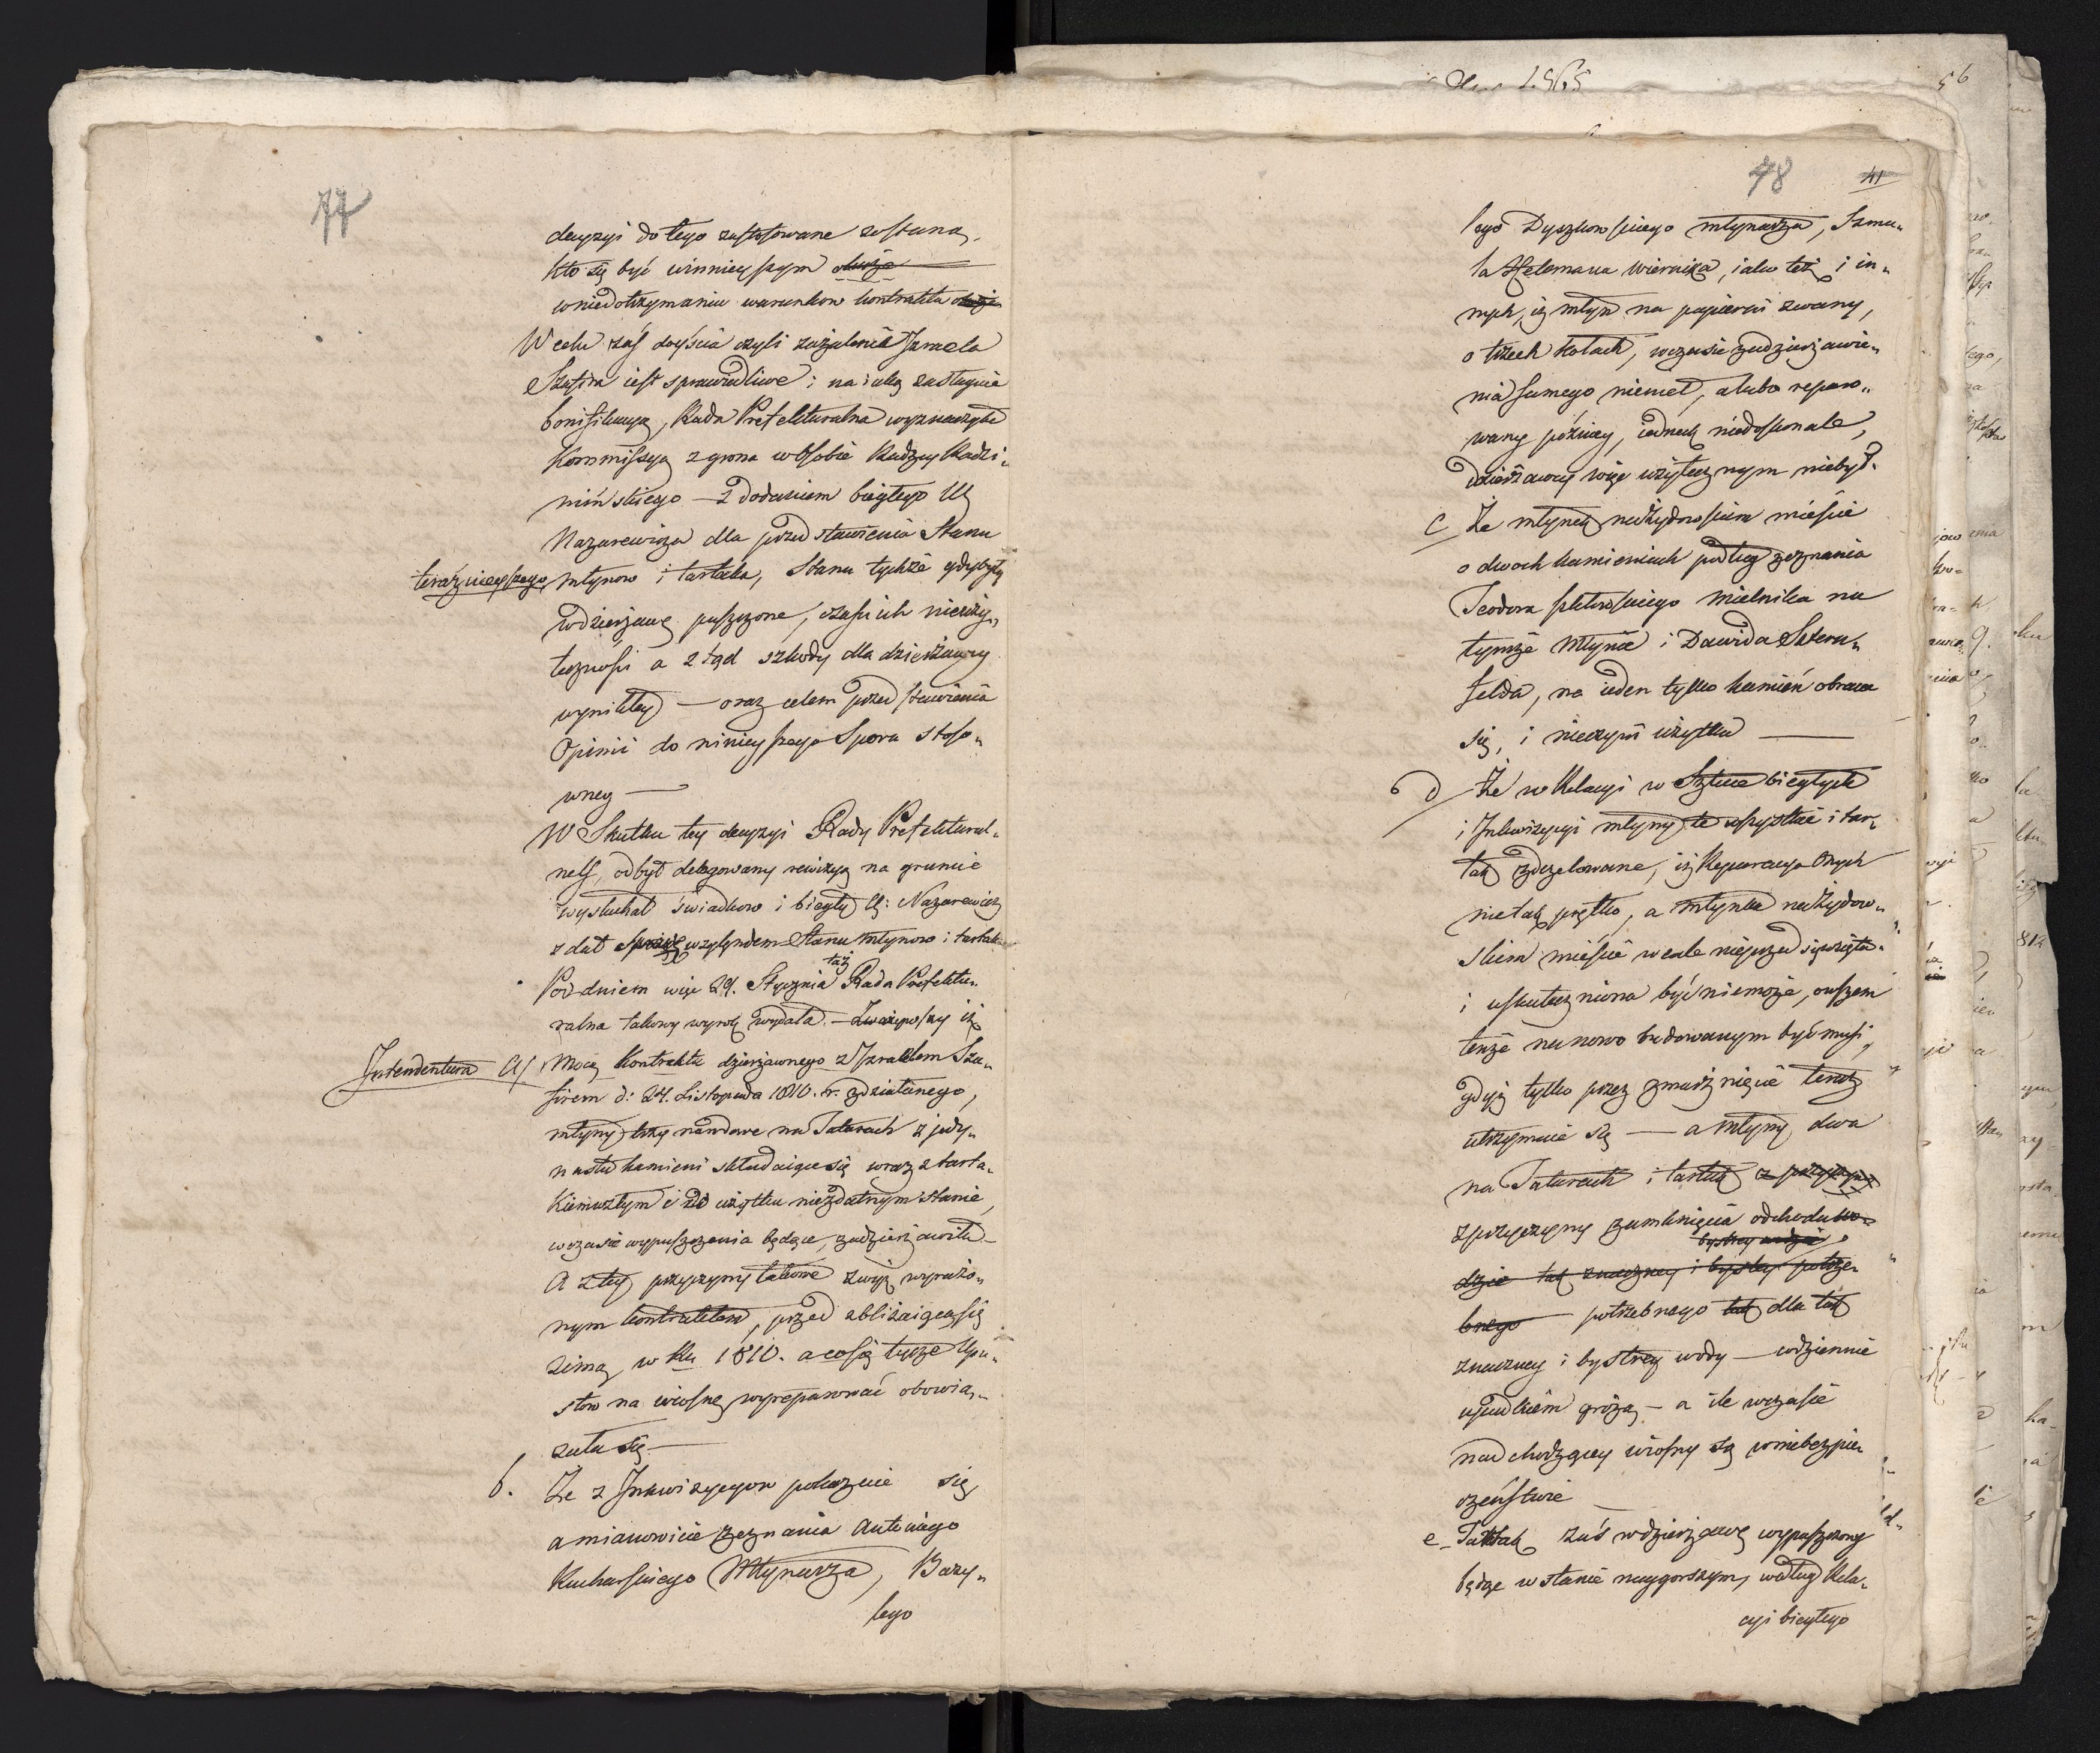 77
decyzyi do tego zastosowane zostaną.
Kto się być winnieyszym okaże
w niedotrzymaniu warunkow kontraktu okaże
W celu zaś doyścia czyli zażalenie Izraela
Szafira iest sprawiedliwe i na iaką zasługuie
bonifikacyą, Rada Prefekturalna wyznaczyła
Kommissyą z grona w Osobie Radzcy Radzi„
mińskiego — z dodaniem biegłego
Nazarewicza dla przedstawienia Stanu
teraźnieyszego młynow i tartaka, Stanu tychże gdy były
w dzierżawę puszczone, czasu ich nieuży„
teczności a ztąd szkody dla dzierżawcy
wynikłey — oraz celem przedstawienia
Opinii do ninieyszego Sporu stoso„
wney —
W Skutku tey decyzyi Rady Prefektural„
ney, odbył delegowany rewizyą na gruncie
wysłuchał świadkow i biegły Nazarewicz
zdał względem Stanu młynow i tartaka
Pod dniem więc 29. Stycznia taż Rada Prefektu„
ralna takowy wyrok wydała. — Zważywszy iż
Intendentura a/ Mocą Kontraktu dzierżawnego z Izraelem Sza„
firem d: 24. Listopada 1810. r. zdziałanego,
młyny trzy narodowe na Tatarach z iedy„
nastu kamieni składaiące się wraz z tarta„
kiem w złym i do użytku niezdatnym stanie,
w czasie wypuszczenia będące, zadzierżawiła —
A z tey przyczyny takowe zwyż wyrażo„
nym kontraktem, przed zbliżaiącą się
zimą w Rku 1810. a co się tycze Upu„
stow na wiosnę wyreparować obowią„
zała się —
b. Że z Inkwizycyow pokazuie się
a mianowicie zeznania Antoniego
Kucharskiego Młynarza, Bazy„
lego
48 41
lego Dyszkowskiego młynarza, Szmu„
la Helcmana wiernika, iako też i in„
nych, iż młyn na papierni zwany,
o trzech kołach, w czasie zadzierżawie„
nia samego niemeł, a lubo reparo„
wany pożniey, iednak niedoskonale,
dzierżawcy więc użytecznym niebył.
c Że młynek na Żydowskiem mieście
o dwoch kamieniach podług zeznania
Teodora mielnika na
tymże młynie i Dawida Stern„
felda, na ieden tylko kamień obraca
się, i nieczyni użytku —
d Że w Relacyi w Sztuce biegłych
i Inkwizycyi młyny te wszystkie i tar„
tak zdezelowane, iż Reparacya Onych
nietak prętko, a młynka na Żydow„
skim mieście wcale nieprzedsięwzięta
i uskuteczniona być niemoże, owszem
tenże na nowo budowanym być musi,
gdyż tylko przez zmarznięcie teraz
utrzymuie się — a młyny dwa
na Tatarach i tartak z przyczyny
z przyczyny zamknięcia odchodu wo„
bystrey wodzie
dzie tak znaczney i bystrey potrze„
bnego potrzebnego tak dla tak
znaczney i bystrey wody — codziennie
upadkiem grożą — a ile w czasie
nadchodzącey wiosny są w niebezpie„
czeństwie
e Tartak zaś w dzierżawę wypuszczony
będąc w stanie naygorszym, według Rela„
cyi biegłego
56